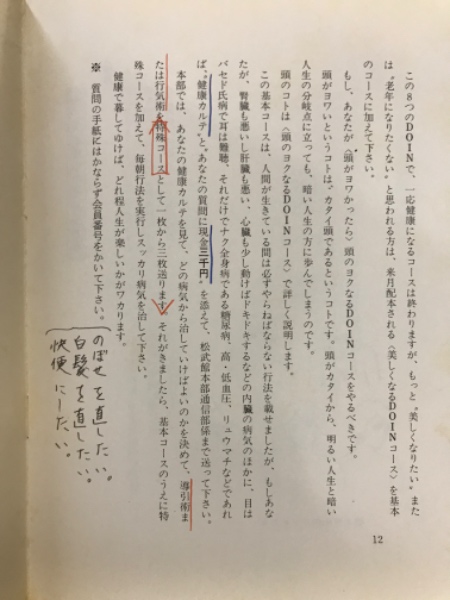 この8つのDOINで、一応健康になるコースは終わりますが、もっと〝美しくなりたい〟また
は〝老年になりたくない〟と思われる方は、来月配本される〈美しくなるDOINコース〉を基本
のコースに加えて下さい。
もし、あなたが〈頭がヨワかったら〉頭のヨクなるDOINコースをやるべきです。
頭がヨワいというコトは〝カタイ頭であるというコトです。頭がカタイから、明るい人生と暗い
人生の分岐点に立っても、暗い人生の方に歩んでしまうのです。
頭のコトは〈頭のヨクなるDOINコース〉で詳しく説明します。
この基本コースは、人間が生きている間は必ずやらねばならない行法を載せましたが、もしあな
たが、腎臓も悪いし肝臓も悪い、心臓も少し動けばドキドキするなどの内臓の病気のほかに、目は
バセド氏病で耳は難聴、それだけでナク全身病である糖尿病、高・低血圧、リュウマチなどであれ
ば、〝健康カルテ〟と〝あなたの質問に現金三千円〟を添えて、松武館本部通信部係まで送って下さい。
本部では、あなたの健康カルテを見て、どの病気から治していけばよいのかを決めて、導引術ま
たは行気術を特殊コースとして一枚から三枚送ります。それがきましたら、基本コースのうえに特
殊コースを加えて、毎朝行法を実行しスッカリ病気を治して下さい。
健康で暮してゆけば、どれ程人生が楽しいかがワカります。
※ 質問の手紙にはかならず会員番号をかいて下さい。
のぼせを直したい。
白髪を直したい。
快便にしたい。
12